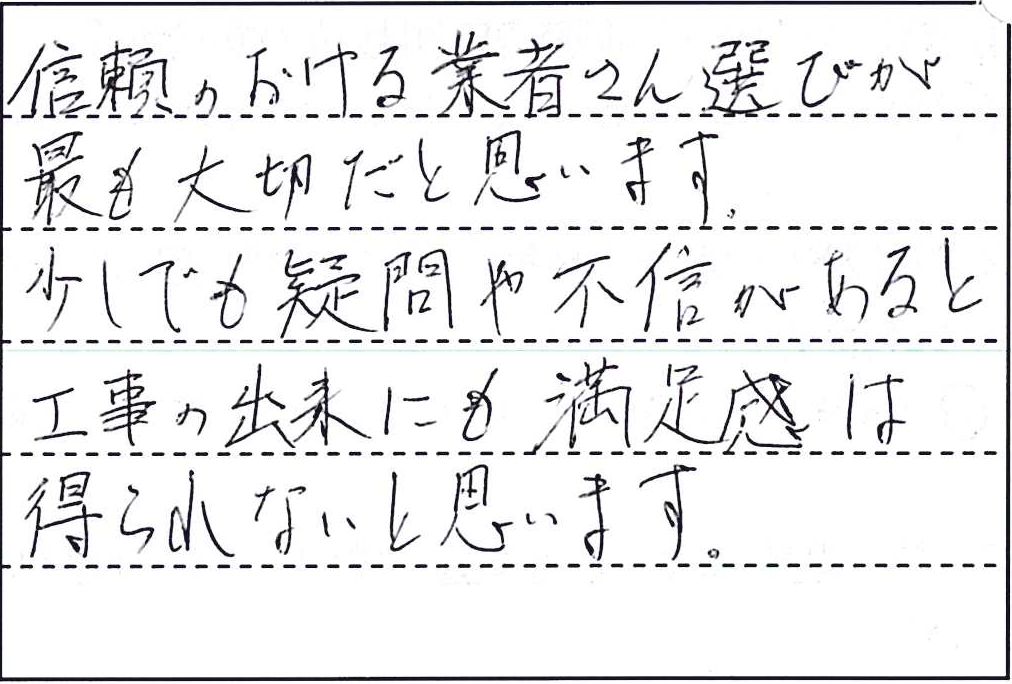 信頼のおける業者さん選びが
最も大切だと思います。
少しでも疑問や不信があると
工事の出来にも満足感は
得られないと思います。